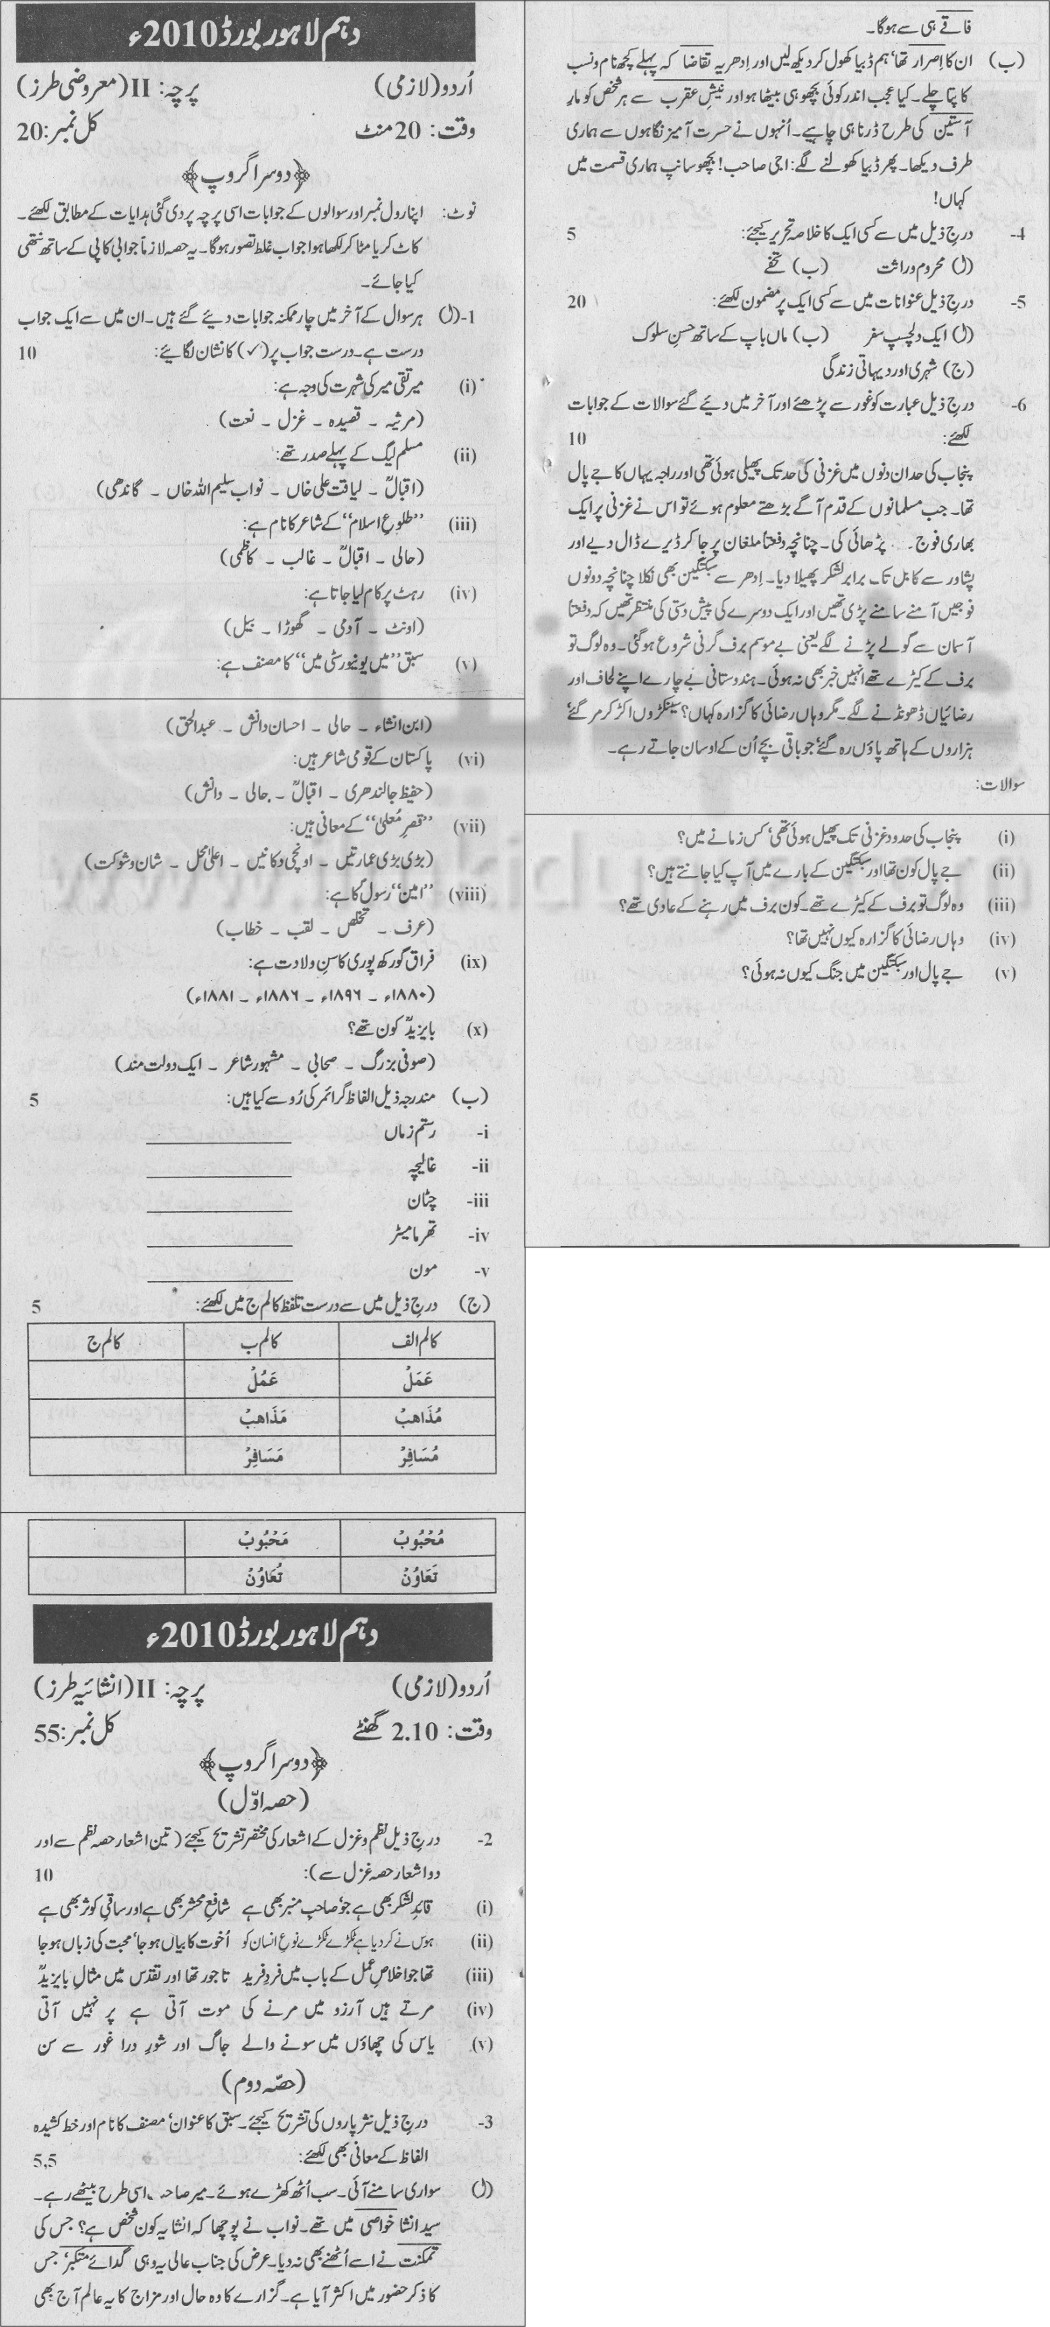 دہم لاہور بورڈ 2010ء
اُردو (لازمی) پرچہ: II (معروضی طرز)
وقت: 20 منٹ کل نمبر: 20
﴿دوسرا گروپ﴾
نوٹ: اپنا رول نمبر اور سوالوں کے جوابات اسی پرچہ پر دی گئی ہدایات کے مطابق لکھئے۔
کاٹ کر یا مٹا کر لکھا ہوا جواب غلط تصور ہوگا۔ یہ حصہ لازماً جوابی کاپی کے ساتھ نتھی
کیا جائے۔
1-(ا) ہر سوال کے آخر میں چار ممکنہ جوابات دیئے گئے ہیں۔ ان میں سے ایک جواب
درست ہے۔ درست جواب پر (✓) کا نشان لگائیے: 10
(i) میر تقی میر کی شہرت کی وجہ ہے:
(مرثیہ ۔ قصیدہ ۔ غزل ۔ نعت)
(ii) مسلم لیگ کے پہلے صدر تھے:
(اقبالؒ ۔ لیاقت علی خاں ۔ نواب سلیم اللہ خاں ۔ گاندھی)
(iii) ’’طلوعِ اسلام‘‘ کے شاعر کا نام ہے:
(حالی ۔ اقبالؒ ۔ غالب ۔ کاظمی)
(iv) رہٹ پر کام لیا جاتا ہے:
(اونٹ ۔ آدمی ۔ گھوڑا ۔ بیل)
(v) سبق ’’میں یونیورسٹی میں‘‘ کا مصنف ہے:
(ابن انشاء ۔ حالی ۔ احسان دانش ۔ عبدالحق)
(vi) پاکستان کے قومی شاعر ہیں:
(حفیظ جالندھری ۔ اقبالؒ ۔ حالی ۔ دانش)
(vii) ’’قصرِ مُعلیٰ‘‘ کے معانی ہیں:
(بڑی بڑی عمارتیں ۔ اونچی دکانیں ۔ اعلیٰ محل ۔ شان و شوکت)
(viii) ’’امین‘‘ رسولؐ کا ہے:
(عرف ۔ تخلص ۔ لقب ۔ خطاب)
(ix) فراق گورکھ پوری کا سنِ ولادت ہے:
(۱۸۸۰ء ۔ ۱۸۹۶ء ۔ ۱۸۸۶ء ۔ ۱۸۸۱ء)
(x) بایزیدؒ کون تھے؟
(صوفی بزرگ ۔ صحابی ۔ مشہور شاعر ۔ ایک دولت مند)
(ب) مندرجہ ذیل الفاظ گرائمر کی رُو سے کیا ہیں: 5
i- رستم زماں
ii- غالیچہ
iii- چٹان
iv- تھرمامیٹر
v- مون
(ج) درج ذیل میں سے درست تلفظ کالم ج میں لکھئے: 5
کالم الف کالم ب کالم ج
عَمَلْ عَمُلْ
مُذَاهِبْ مَذَاهِبْ
مُسَافِرْ مَسَافِرْ
مُحْبُوبْ مَحْبُوبْ
تَعَاوُنْ تُعَاوُنْ
دہم لاہور بورڈ 2010ء
اُردو (لازمی) پرچہ: II (انشائیہ طرز)
وقت: 2.10 گھنٹے کل نمبر: 55
﴿دوسرا گروپ﴾
(حصہ اوّل)
2- درج ذیل نظم و غزل کے اشعار کی مختصر تشریح کیجئے (تین اشعار حصہ نظم سے اور
دو اشعار حصہ غزل سے): 10
(i) قائدِ لشکر بھی ہے جو صاحبِ منبر بھی ہے شافعِ محشر بھی ہے اور ساقیِ کوثر بھی ہے
(ii) ہوس نے کر دیا ہے ٹکڑے ٹکڑے نوعِ انسان کو اُخوت کا بیاں ہو جا، محبت کی زباں ہو جا
(iii) تھا جو اخلاصِ عمل کے باب میں فردِ فرید تاجور تھا اور تقدس میں مثالِ بایزیدؒ
(iv) مرتے ہیں آرزو میں مرنے کی موت آتی ہے پر نہیں آتی
(v) یاس کی چھاؤں میں سونے والے جاگ اور شورِ درا غور سے سن
(حصّہ دوم)
3- درج ذیل نثر پاروں کی تشریح کیجئے۔ سبق کا عنوان، مصنف کا نام اور خط کشیدہ
الفاظ کے معانی بھی لکھئے: 5,5
(ا) سواری سامنے آئی۔ سب اُٹھ کھڑے ہوئے۔ میر صاحب اسی طرح بیٹھے رہے۔
سید انشا خواصی میں تھے۔ نواب نے پوچھا کہ انشا یہ کون شخص ہے؟ جس کی
تمکنت نے اسے اُٹھنے بھی نہ دیا۔ عرض کی جناب عالی یہ وہی گدائے متکبر، جس
کا ذکر حضور میں اکثر آیا ہے۔ گزارے کا وہ حال اور مزاج کا یہ عالم آج بھی
فاقے ہی سے ہوگا۔
(ب) ان کا اِصرار تھا، ہم ڈبیا کھول کر دیکھ لیں اور اِدھر یہ تقاضا کہ پہلے کچھ نام و نسب
کا پتا چلے۔ کیا عجب اندر کوئی بچھو ہی بیٹھا ہو اور نیشِ عقرب سے ہر شخص کو مارِ
آستین کی طرح ڈرنا ہی چاہیے۔ اُنہوں نے حسرت آمیز نگاہوں سے ہماری
طرف دیکھا۔ پھر ڈبیا کھولنے لگے: اجی صاحب! بچھو سانپ ہماری قسمت میں
کہاں!
4- درج ذیل میں سے کسی ایک کا خلاصہ تحریر کیجئے: 5
(ا) محروم وراثت (ب) تحفے
5- درج ذیل عنوانات میں سے کسی ایک پر مضمون لکھئے: 20
(ا) ایک دلچسپ سفر (ب) ماں باپ کے ساتھ حسنِ سلوک
(ج) شہری اور دیہاتی زندگی
6- درج ذیل عبارت کو غور سے پڑھئے اور آخر میں دیئے گئے سوالات کے جوابات
لکھئے: 10
پنجاب کی حد ان دنوں میں غزنی کی حد تک پھیلی ہوئی تھی اور راجہ یہاں کا جے پال
تھا۔ جب مسلمانوں کے قدم آگے بڑھتے معلوم ہوئے تو اس نے غزنی پر ایک
بھاری فوج پڑھائی کی۔ چنانچہ دفعتاً ملغان پر جا کر ڈیرے ڈال دیے اور
پشاور سے کابل تک برابر لشکر پھیلا دیا۔ اِدھر سے سبکتگین بھی نکلا چنانچہ دونوں
فوجیں آمنے سامنے پڑی تھیں اور ایک دوسرے کی پیش دستی کی منتظر تھیں کہ دفعتاً
آسمان سے گولے پڑنے لگے یعنی بے موسم برف گرنی شروع ہو گئی۔ وہ لوگ تو
برف کے کیڑے تھے انہیں خبر بھی نہ ہوئی۔ ہندوستانی بے چارے اپنے لحاف اور
رضائیاں ڈھونڈنے لگے۔ مگر وہاں رضائی کا گزارہ کہاں؟ سینکڑوں اکڑ کر مر گئے
ہزاروں کے ہاتھ پاؤں رہ گئے، جو باقی بچے اُن کے اوسان جاتے رہے۔
سوالات:
(i) پنجاب کی حدود غزنی تک پھیل ہوئی تھی، کس زمانے میں؟
(ii) جے پال کون تھا اور سبکتگین کے بارے میں آپ کیا جانتے ہیں؟
(iii) وہ لوگ تو برف کے کیڑے تھے۔ کون برف میں رہنے کے عادی تھے؟
(iv) وہاں رضائی کا گزارہ کیوں نہیں تھا؟
(v) جے پال اور سبکتگین میں جنگ کیوں نہ ہوئی؟